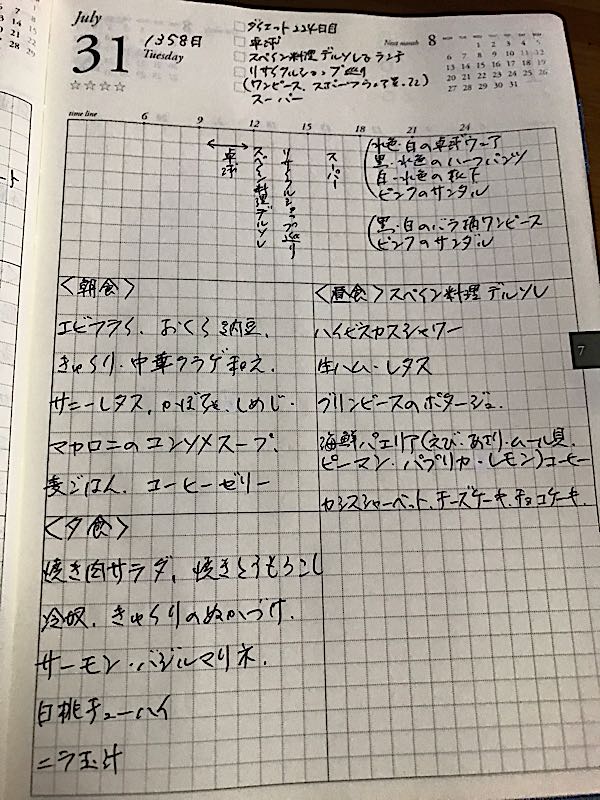 July
31
Tuesday
1358日
ダイエット224日目
卓球
スペイン料理デルソレランチ
リサイクルショップ巡り
(ワンピース、
スーパー
Next month 8
MON TUE WED THU FRI SAT SUN
1 2 3 4 5
6 7 8 9 10 11 12
13 14 15 16 17 18 19
20 21 22 23 24 25 26
27 28 29 30 31
time line
6 9 12 15 18 21 24
卓球
スペイン料理デルソレ
リサイクルショップ巡り
スーパー
水色・白の卓球ウェア
黒・水色のハーフパンツ
白・水色の靴下
ピンクのサンダル
黒・白のバラ柄ワンピース
ピンクのサンダル
<朝食>
エビフライ、おくら納豆、
きゅうり・中華クラゲ和え、
サニーレタス、かぼちゃ、しめじ・
マカロニのコンソメスープ、
麦ごはん、コーヒーゼリー
<昼食>スペイン料理デルソレ
ハイビスカスシャワー
生ハム・レタス
グリンピースのポタージュ、
海鮮パエリア(えび・あさり・ムール貝、
ピーマン・パプリカ・レモン)コーヒー
カシスシャーベット、チーズケーキ、チョコケーキ、
7
<夕食>
焼き肉サラダ、焼きとうもろこし
冷奴、きゅうりのぬかづけ、
サーモン・バジルマリネ、
白桃チューハイ
ニラ玉汁